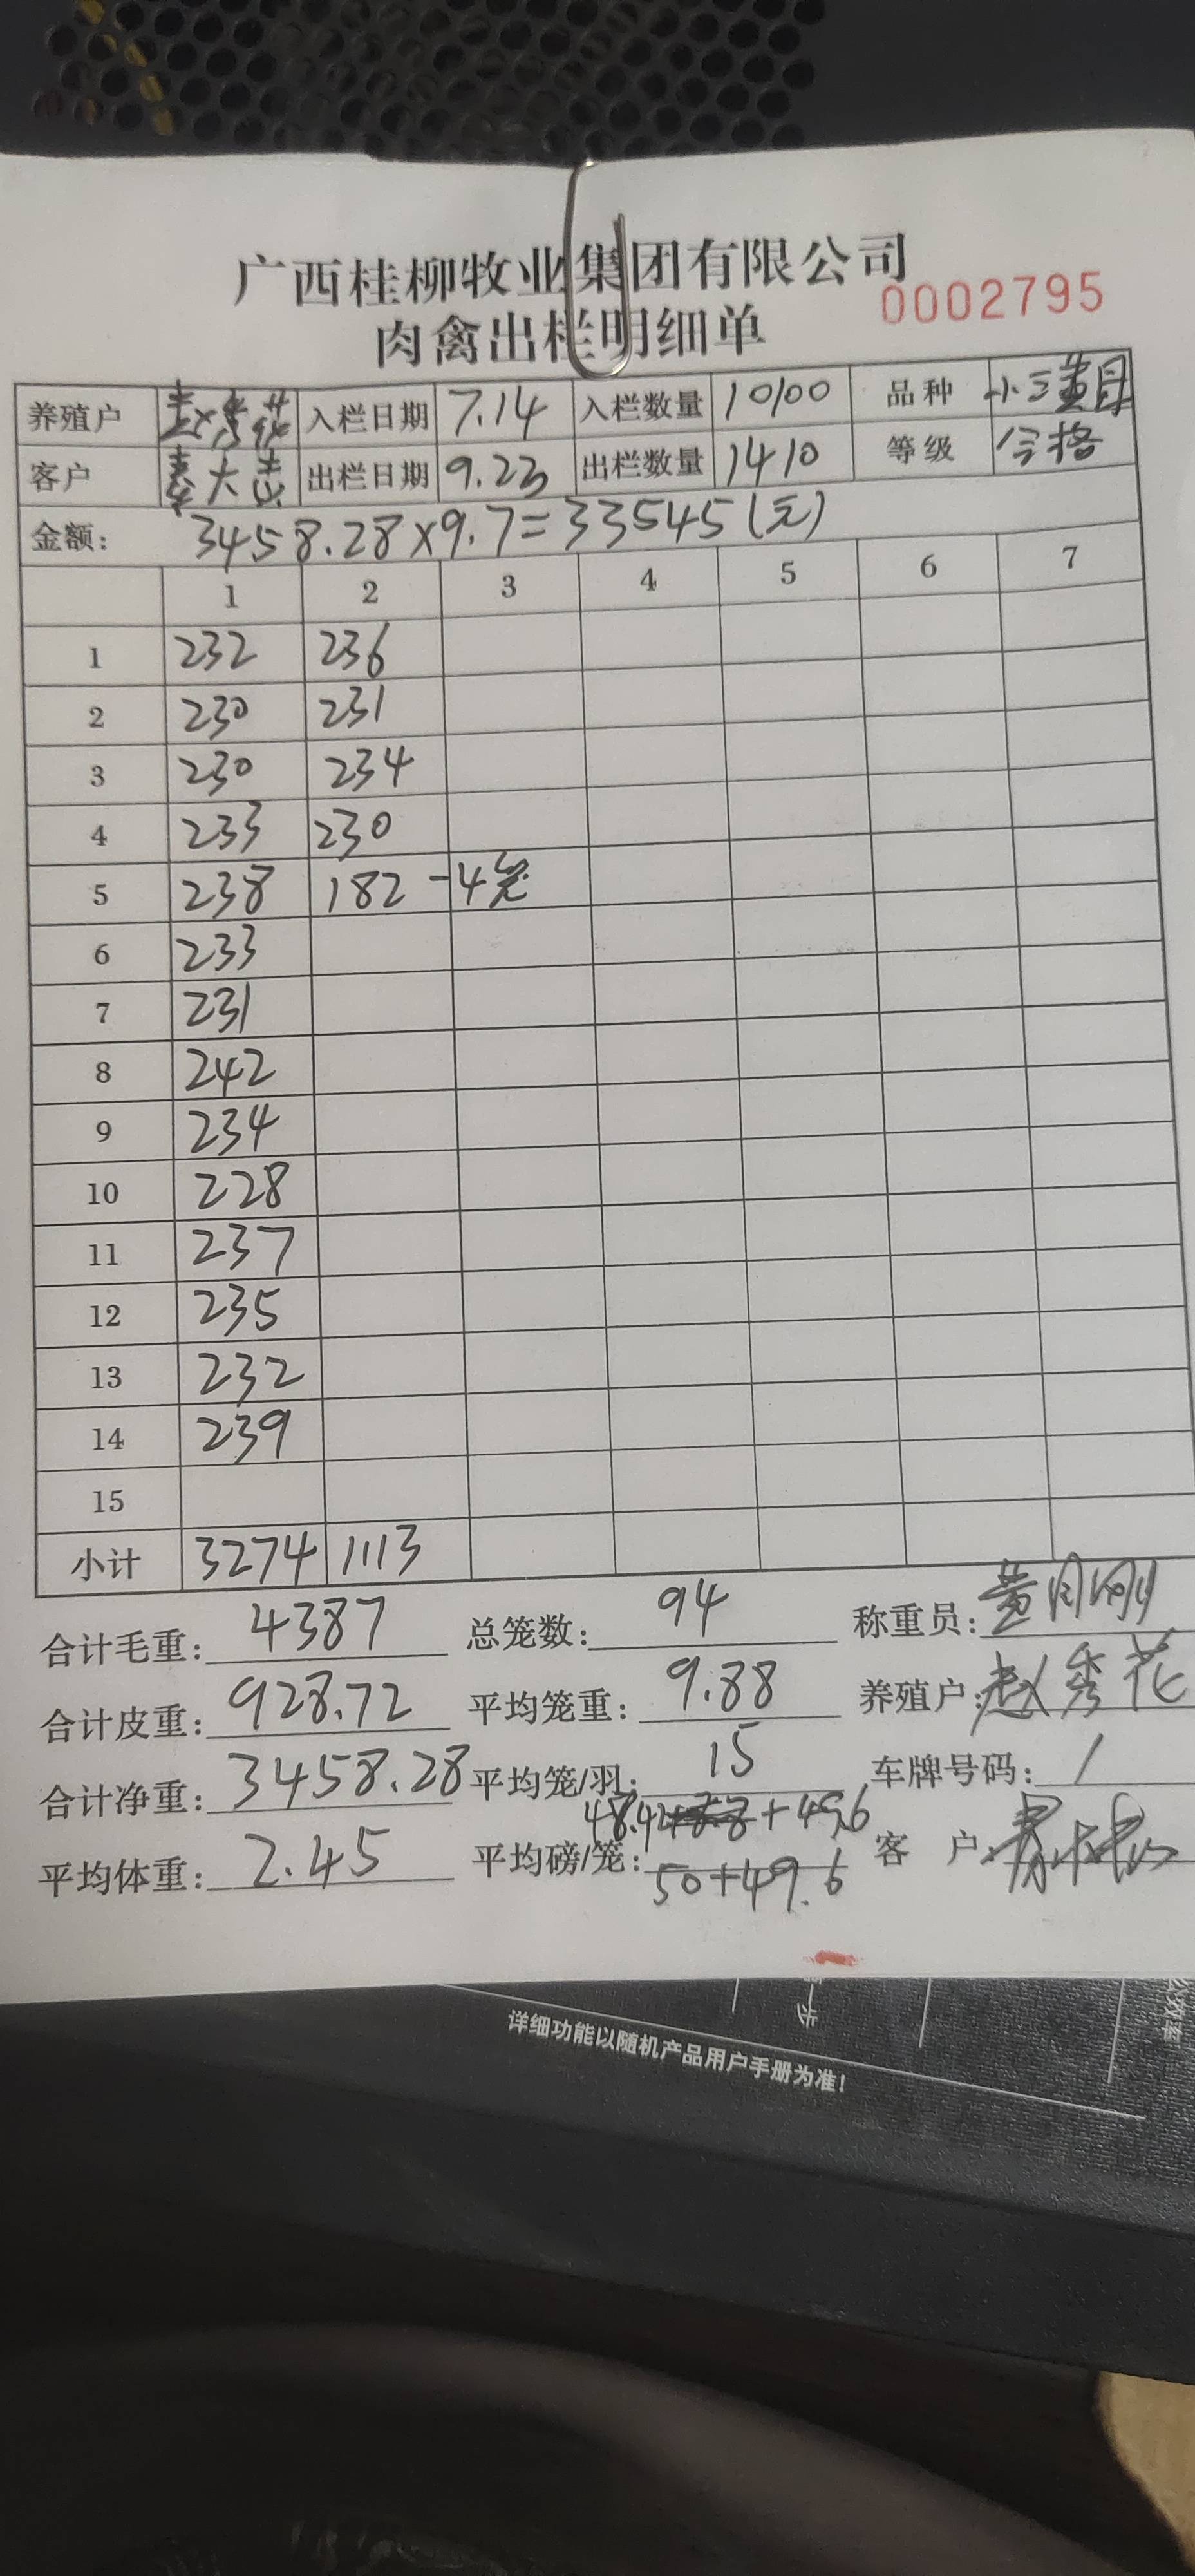 广西桂柳牧业集团有限公司
肉禽出栏明细单 0002795
养殖户 赵秀花 入栏日期 7.14 入栏数量 10100 品种 小三黄母
客户 秦大忠 出栏日期 9.23 出栏数量 1410 等级 合格
金额: 3458.28×9.7=33545(元)
1 2 3 4 5 6 7
1 232 236
2 230 231
3 230 234
4 233 230
5 238 182 -4笼
6 233
7 231
8 242
9 234
10 228
11 237
12 235
13 232
14 239
15
小计 3274 1113
合计毛重: 4387 总笼数: 94 称重员: 黄月刚
合计皮重: 928.72 平均笼重: 9.88 养殖户: 赵秀花
合计净重: 3458.28 平均笼/羽: 15 车牌号码: /
48.4 +49.6
平均体重: 2.45 平均磅/笼: 50+49.6 客 户:
一步
详细功能以随机产品用户手册为准!